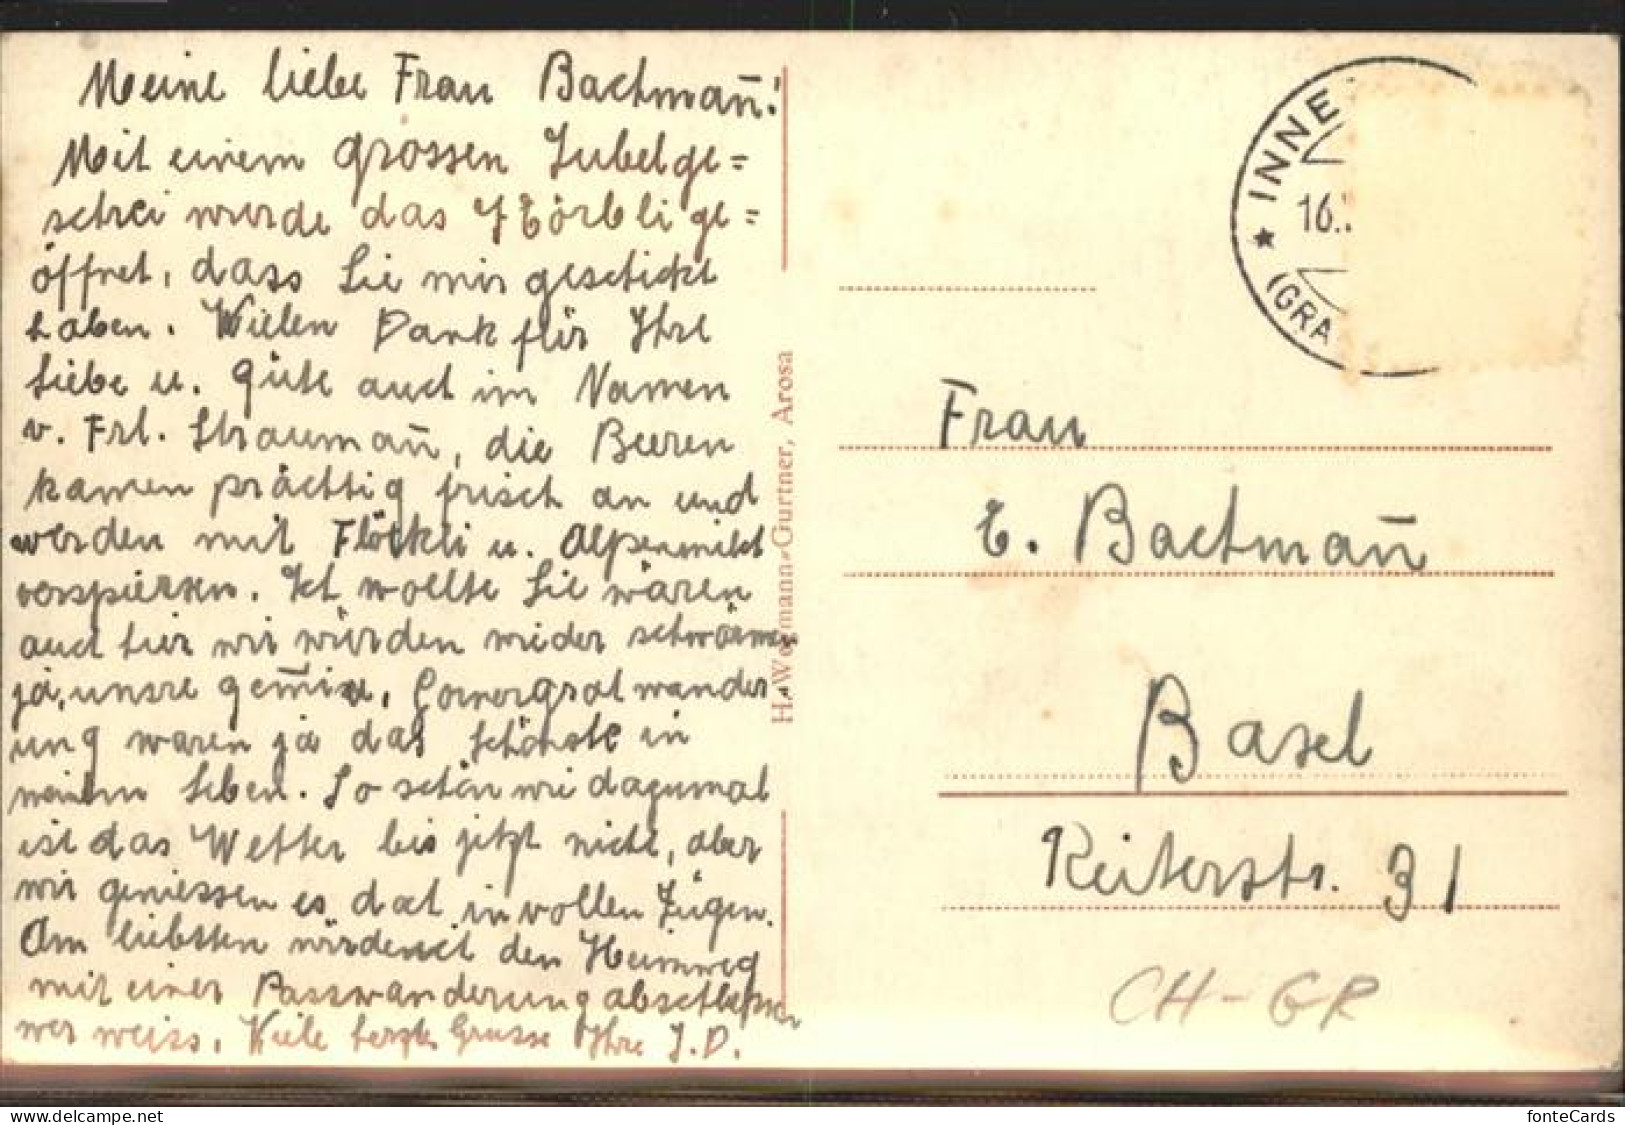 Meine liebe Frau Bachmañ!
Mit einem grossen Jubelge=
schrei wurde das Körbli ge=
öffnet, dass Sie mir geschickt
haben. Vielen Dank für Ihre
Liebe u. Güte auch im Namen
v. Frl. Straumañ, die Beeren
kamen prächtig frisch an und
werden mit Flöckli u. Alpenmilch
verspiesen. Ich wollte Sie wären
auch hier wir würden wieder schwärmen
ja, unsre Gornergratwander
ung waren ja das schönste in
meinem Leben. So schön wie dazumal
ist das Wetter bis jetzt nicht, aber
wir geniessen es doch in vollen Zügen.
Am liebsten würde ich den Heimweg
mit einer Passwanderung abschliessen
wer weiss. Viele herzl. Grüsse Ihre J. D.
H. Wegmann-Gurtner, Arosa
INNE
16.
(GRA
Frau
E. Bachmañ
Basel
Reiterstr. 31
CH-GR
delcampe.net
fonteCards